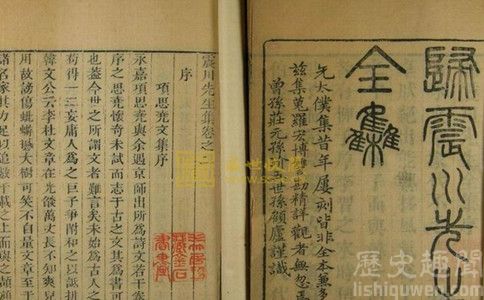 歸震川先生
全集
先太僕集昔年屢刻皆非全本兼多
茲集蒐羅宏博讐勘精詳觀者無忽焉
曾孫莊元孫玠世孫顧廬謹識
震川先生集卷之
序
項思堯文集序
永嘉項思堯與余遇京師出所爲詩文若干
序之思堯懷奇未試而志于古之文其爲書可
也蓋今世之所謂文者難言矣未始爲古人之
苟得一二妄庸人爲之巨子爭附和之以詆
韓文公云李杜文章在光燄萬丈長不
用故謗傷蚍蜉撼大樹可笑不自量文章至于
諸名家其力足以追數千載之上而與之頡頏
歷史趣聞
lishiquwen.com